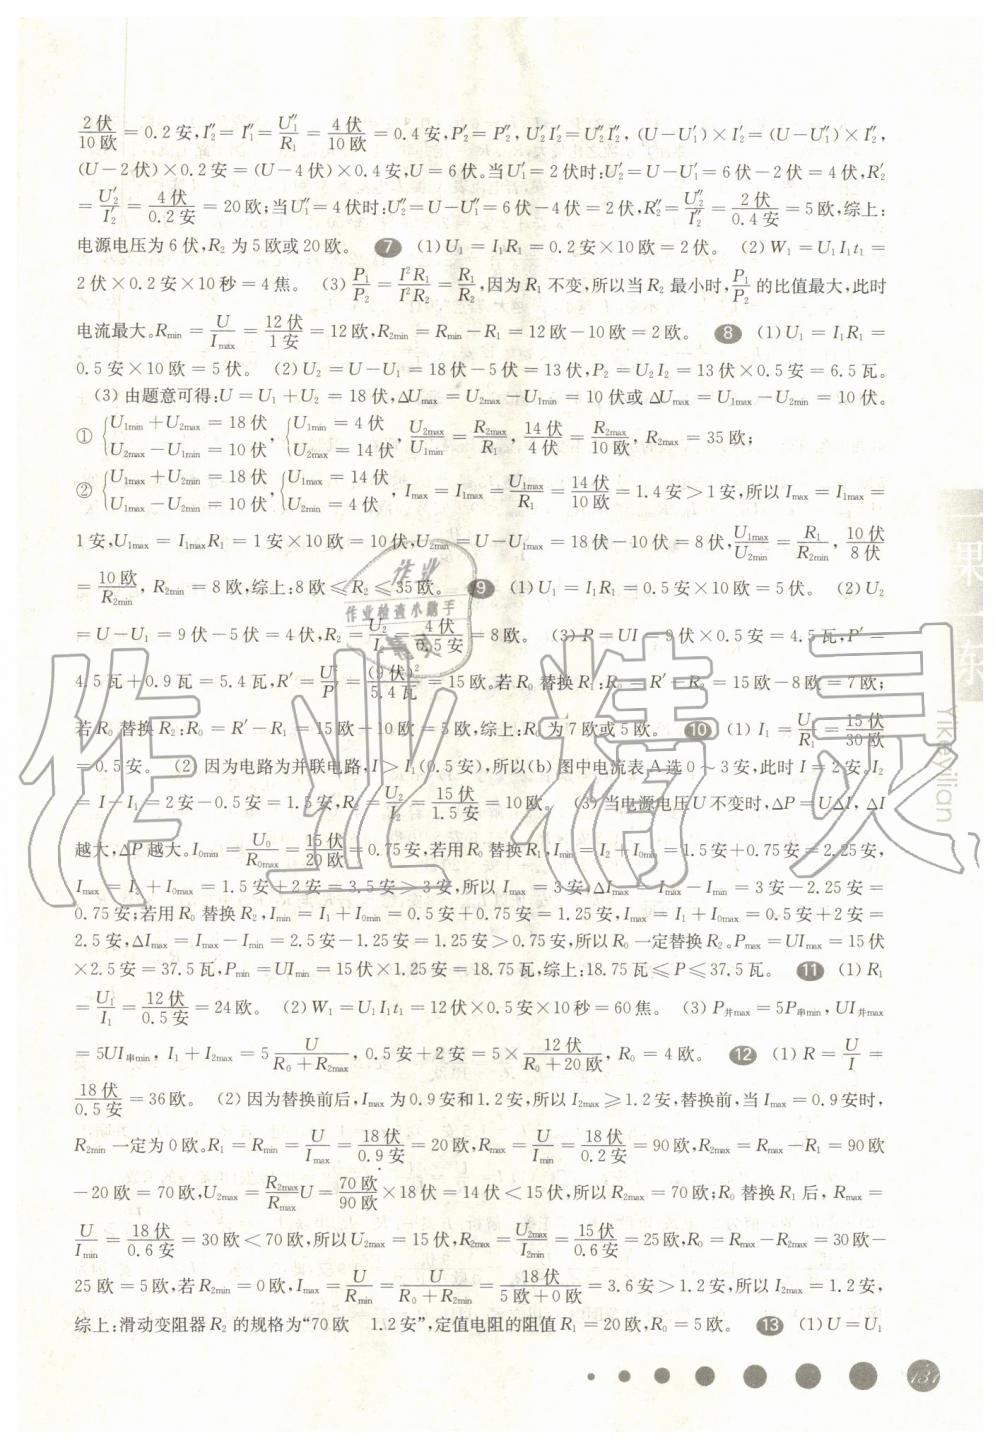 2伏/10欧=0.2安,I″₂=I″₁=U″₁/R₁=4伏/10欧=0.4安,P′₂=P″₂,U′₂I′₂=U″₂I″₂,(U-U′₁)×I′₂=(U-U″₁)×I″₂,
(U-2伏)×0.2安=(U-4伏)×0.4安,U=6伏。当U′₁=2伏时:U′₂=U-U′₁=6伏-2伏=4伏,R′₂
=U′₂/I′₂=4伏/0.2安=20欧;当U″₁=4伏时:U″₂=U-U″₁=6伏-4伏=2伏,R″₂=U″₂/I″₂=2伏/0.4安=5欧,综上:
电源电压为6伏,R₂为5欧或20欧。 7 (1) U₁=I₁R₁=0.2安×10欧=2伏。 (2) W₁=U₁I₁t₁=
2伏×0.2安×10秒=4焦。 (3) P₁/P₂=I²R₁/I²R₂=R₁/R₂,因为R₁不变,所以当R₂最小时,P₁/P₂的比值最大,此时
电流最大。Rmin=U/Imax=12伏/1安=12欧,R2min=Rmin-R₁=12欧-10欧=2欧。 8 (1) U₁=I₁R₁=
0.5安×10欧=5伏。 (2) U₂=U-U₁=18伏-5伏=13伏,P₂=U₂I₂=13伏×0.5安=6.5瓦。
(3) 由题意可得:U=U₁+U₂=18伏,ΔUmax=U2max-U1min=10伏或ΔUmax=U1max-U2min=10伏。
① {U1min+U2max=18伏 U2max-U1min=10伏, {U1min=4伏 U2max=14伏, U2max/U1min=R2max/R₁, 14伏/4伏=R2max/10欧, R2max=35欧;
② {U1max+U2min=18伏 U1max-U2min=10伏, {U1max=14伏 U2min=4伏, Imax=I1max=U1max/R₁=14伏/10欧=1.4安>1安,所以Imax=I1max=
1安,U1max=I1maxR₁=1安×10欧=10伏,U2min=U-U1max=18伏-10伏=8伏,U1max/U2min=R₁/R2min,10伏/8伏
=10欧/R2min,R2min=8欧,综上:8欧≤R₂≤35欧。 9 (1) U₁=I₁R₁=0.5安×10欧=5伏。 (2) U₂
=U-U₁=9伏-5伏=4伏,R₂=U₂/I=4伏/0.5安=8欧。 (3) P=UI=9伏×0.5安=4.5瓦,P′=
4.5瓦+0.9瓦=5.4瓦,R′=U²/P′=(9伏)²/5.4瓦=15欧。若R₀替换R₁:R₀=R′-R₂=15欧-8欧=7欧;
若R₀替换R₂:R₀=R′-R₁=15欧-10欧=5欧,综上:R₀为7欧或5欧。 10 (1) I₁=U/R₁=15伏/30欧
=0.5安。 (2) 因为电路为并联电路,I>I₁(0.5安),所以(b)图中电流表A选0～3安,此时I=2安。I₂
=I-I₁=2安-0.5安=1.5安,R₂=U₂/I₂=15伏/1.5安=10欧。 (3) 当电源电压U不变时,ΔP=UΔI,ΔI
越大,ΔP越大。I0min=U₀/R0max=15伏/20欧=0.75安,若用R₀替换R₁,Imin=I₂+I0min=1.5安+0.75安=2.25安,
Imax=I₂+I0max=1.5安+2安=3.5安>3安,所以Imax=3安,ΔImax=Imax-Imin=3安-2.25安=
0.75安;若用R₀替换R₂,Imin=I₁+I0min=0.5安+0.75安=1.25安,Imax=I₁+I0max=0.5安+2安=
2.5安,ΔImax=Imax-Imin=2.5安-1.25安=1.25安>0.75安,所以R₀一定替换R₂。Pmax=UImax=15伏
×2.5安=37.5瓦,Pmin=UImin=15伏×1.25安=18.75瓦,综上:18.75瓦≤P≤37.5瓦。 11 (1) R₁
=U₁/I₁=12伏/0.5安=24欧。 (2) W₁=U₁I₁t₁=12伏×0.5安×10秒=60焦。 (3) P并max=5P串min,UI并max
=5UI串min,I₁+I2max=5 U/(R₀+R2max),0.5安+2安=5×12伏/(R₀+20欧),R₀=4欧。 12 (1) R=U/I=
18伏/0.5安=36欧。 (2) 因为替换前后,Imax为0.9安和1.2安,所以I2max≥1.2安,替换前,当Imax=0.9安时,
R2min一定为0欧。R₁=Rmin=U/Imax=18伏/0.9安=20欧,Rmax=U/Imin=18伏/0.2安=90欧,R2max=Rmax-R₁=90欧
-20欧=70欧,U2max=R2max/Rmax U=70欧/90欧×18伏=14伏<15伏,所以R2max=70欧;R₀替换R₁后,Rmax=
U/Imin=18伏/0.6安=30欧<70欧,所以U2max=15伏,R2max=U2max/I2min=15伏/0.6安=25欧,R₀=Rmax-R2max=30欧-
25欧=5欧,若R2min=0欧,Imax=U/Rmin=U/(R₀+R2min)=18伏/(5欧+0欧)=3.6安>1.2安,所以I2max=1.2安,
综上:滑动变阻器R₂的规格为“70欧 1.2安”,定值电阻的阻值R₁=20欧,R₀=5欧。 13 (1) U=U₁
一
果
一
练
Yikeyilian
作业
作业检查小助手
作业精灵
131